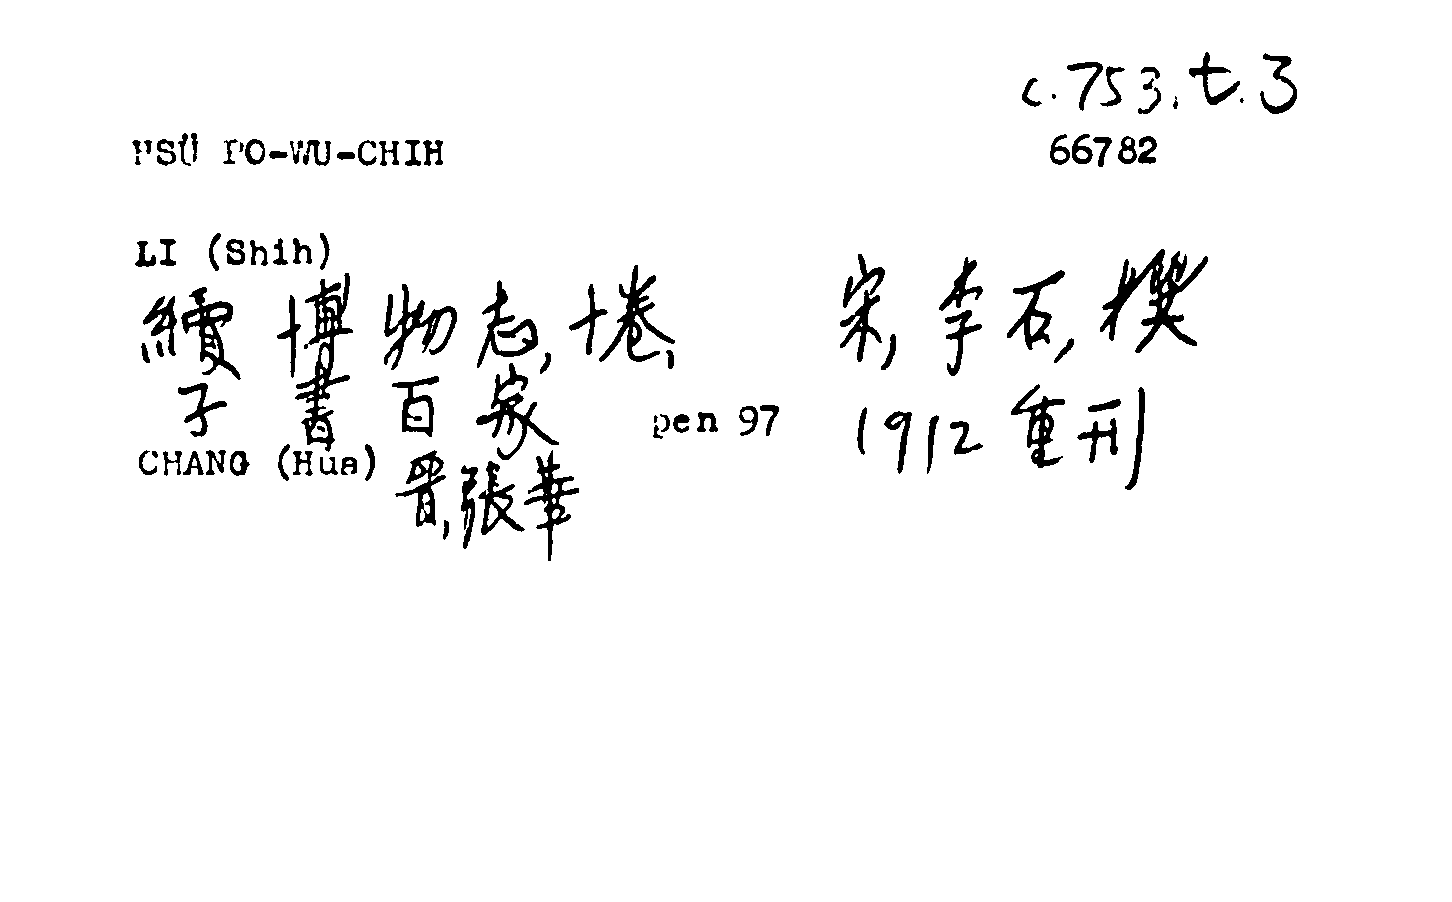 c.753.t.3
HSÜ PO-WU-CHIH 66782
LI (Shih)
續博物志,十卷, 宋,李石,撰
子書百家 pen 97 1912重刊
CHANG (Hua)
晋,張華